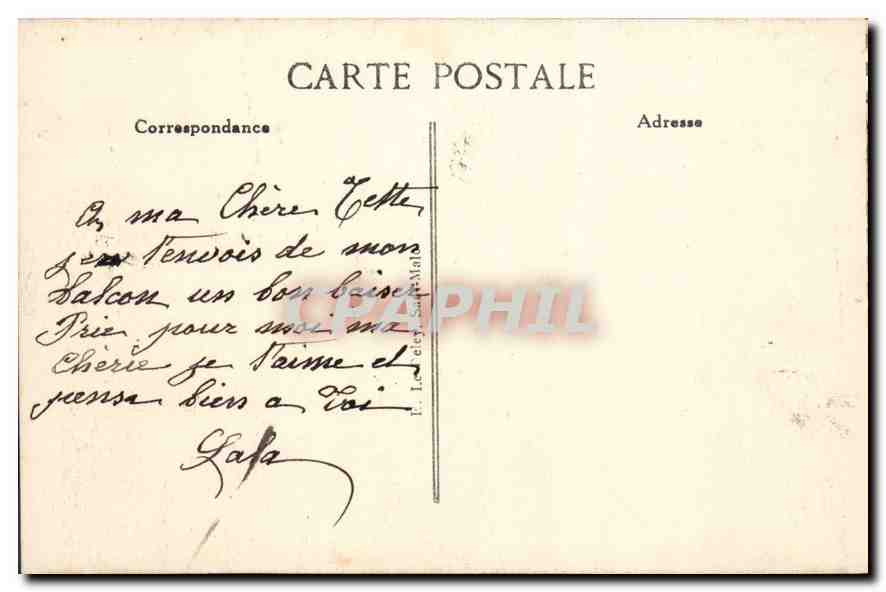 CARTE POSTALE
Correspondance
Adresse
A ma Chère Tette
je t'envois de mon
balcon un bon baiser
Prie pour moi ma
Chérie je t'aime et
pense bien a Toi
Lala
CPAPHIL
Saint-Malo